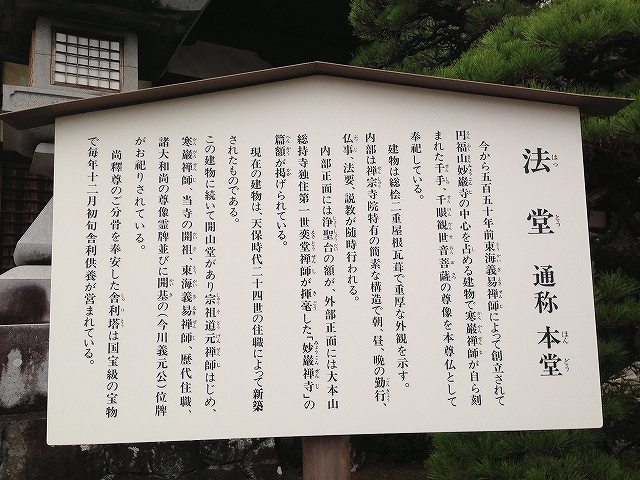 法堂 通称 本堂
今から五百五十年前東海義易禅師によって創立されて
円福山妙厳寺の中心を占める建物で寒巌禅師が自ら刻
まれた千手、千眼観世音菩薩の尊像を本尊仏として
奉祀している。
建物は総桧二重屋根瓦葺で重厚な外観を示す。
内部は禅宗寺院特有の簡素な構造で朝、昼、晩の勤行、
仏事、法要、説教が随時行われる。
内部正面には浄聖台の額が、外部正面には大本山
総持寺独住第一世奕堂禅師が揮毫した「妙巌禅寺」の
篇額が掲げられている。
現在の建物は、天保時代二十四世の住職によって新築
されたものである。
この建物に続いて開山堂があり宗祖道元禅師はじめ、
寒巌禅師、当寺の開祖、東海義易禅師、歴代住職、
諸大和尚の尊像霊牌並びに開基の(今川義元公)位牌
がお祀りされている。
尚釋尊のご分骨を奉安した舎利塔は国宝級の宝物
で毎年十二月初旬舎利供養が営まれている。